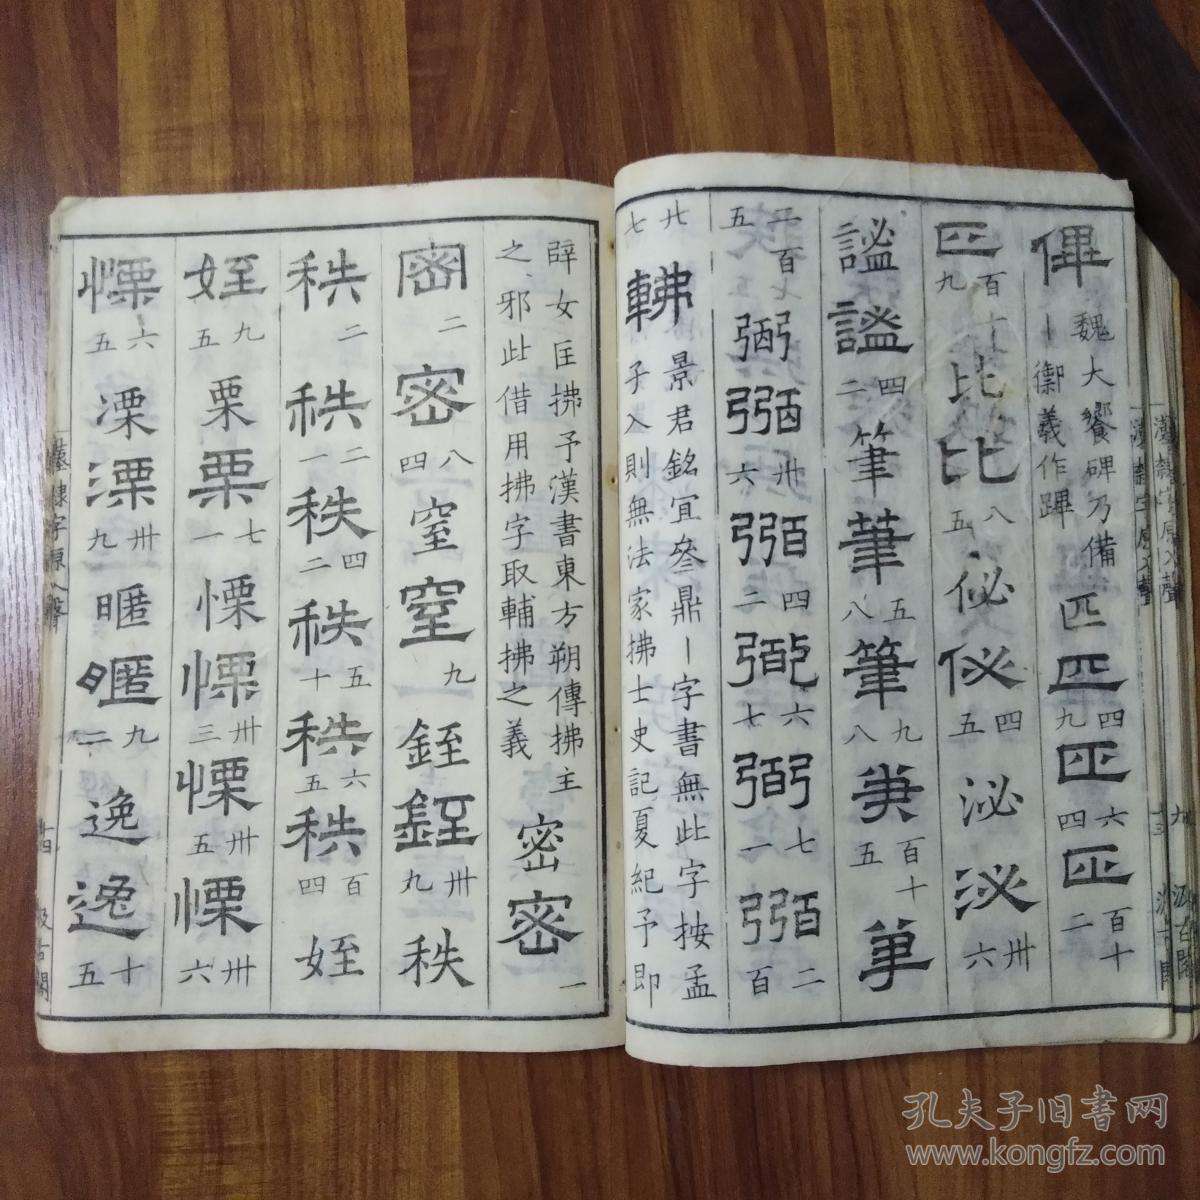 俾魏大饗碑乃備丨御義作𥏠匹匹四九匹六四匹百十二
匹百十九比比八五佖佖四五泌泌卅六
謐謐四二筆筆五八筆九八筆百十五筆
二百十五弼弼卅六弼四二弼六七弼七一弼二百
廿七𨌥景君銘宜參鼎丨字書無此字按孟子入則無法家拂士史記夏紀予即
辟女匡拂予漢書東方朔傳拂主之邪此借用拂字取輔拂之義密密一
密二密八四窒窒九銍銍卅九秩
秩二秩二一秩四二秩五十秩六五秩百四姪
姪九五栗栗七一慄慄卅三慄卅五慄卅六
慄六五凓凓卅九暱暱九二逸逸十五
漢隸字源入聲
十四
汲古閣
漢隸字源入聲
汲古閣
孔夫子旧书网
www.kongfz.com